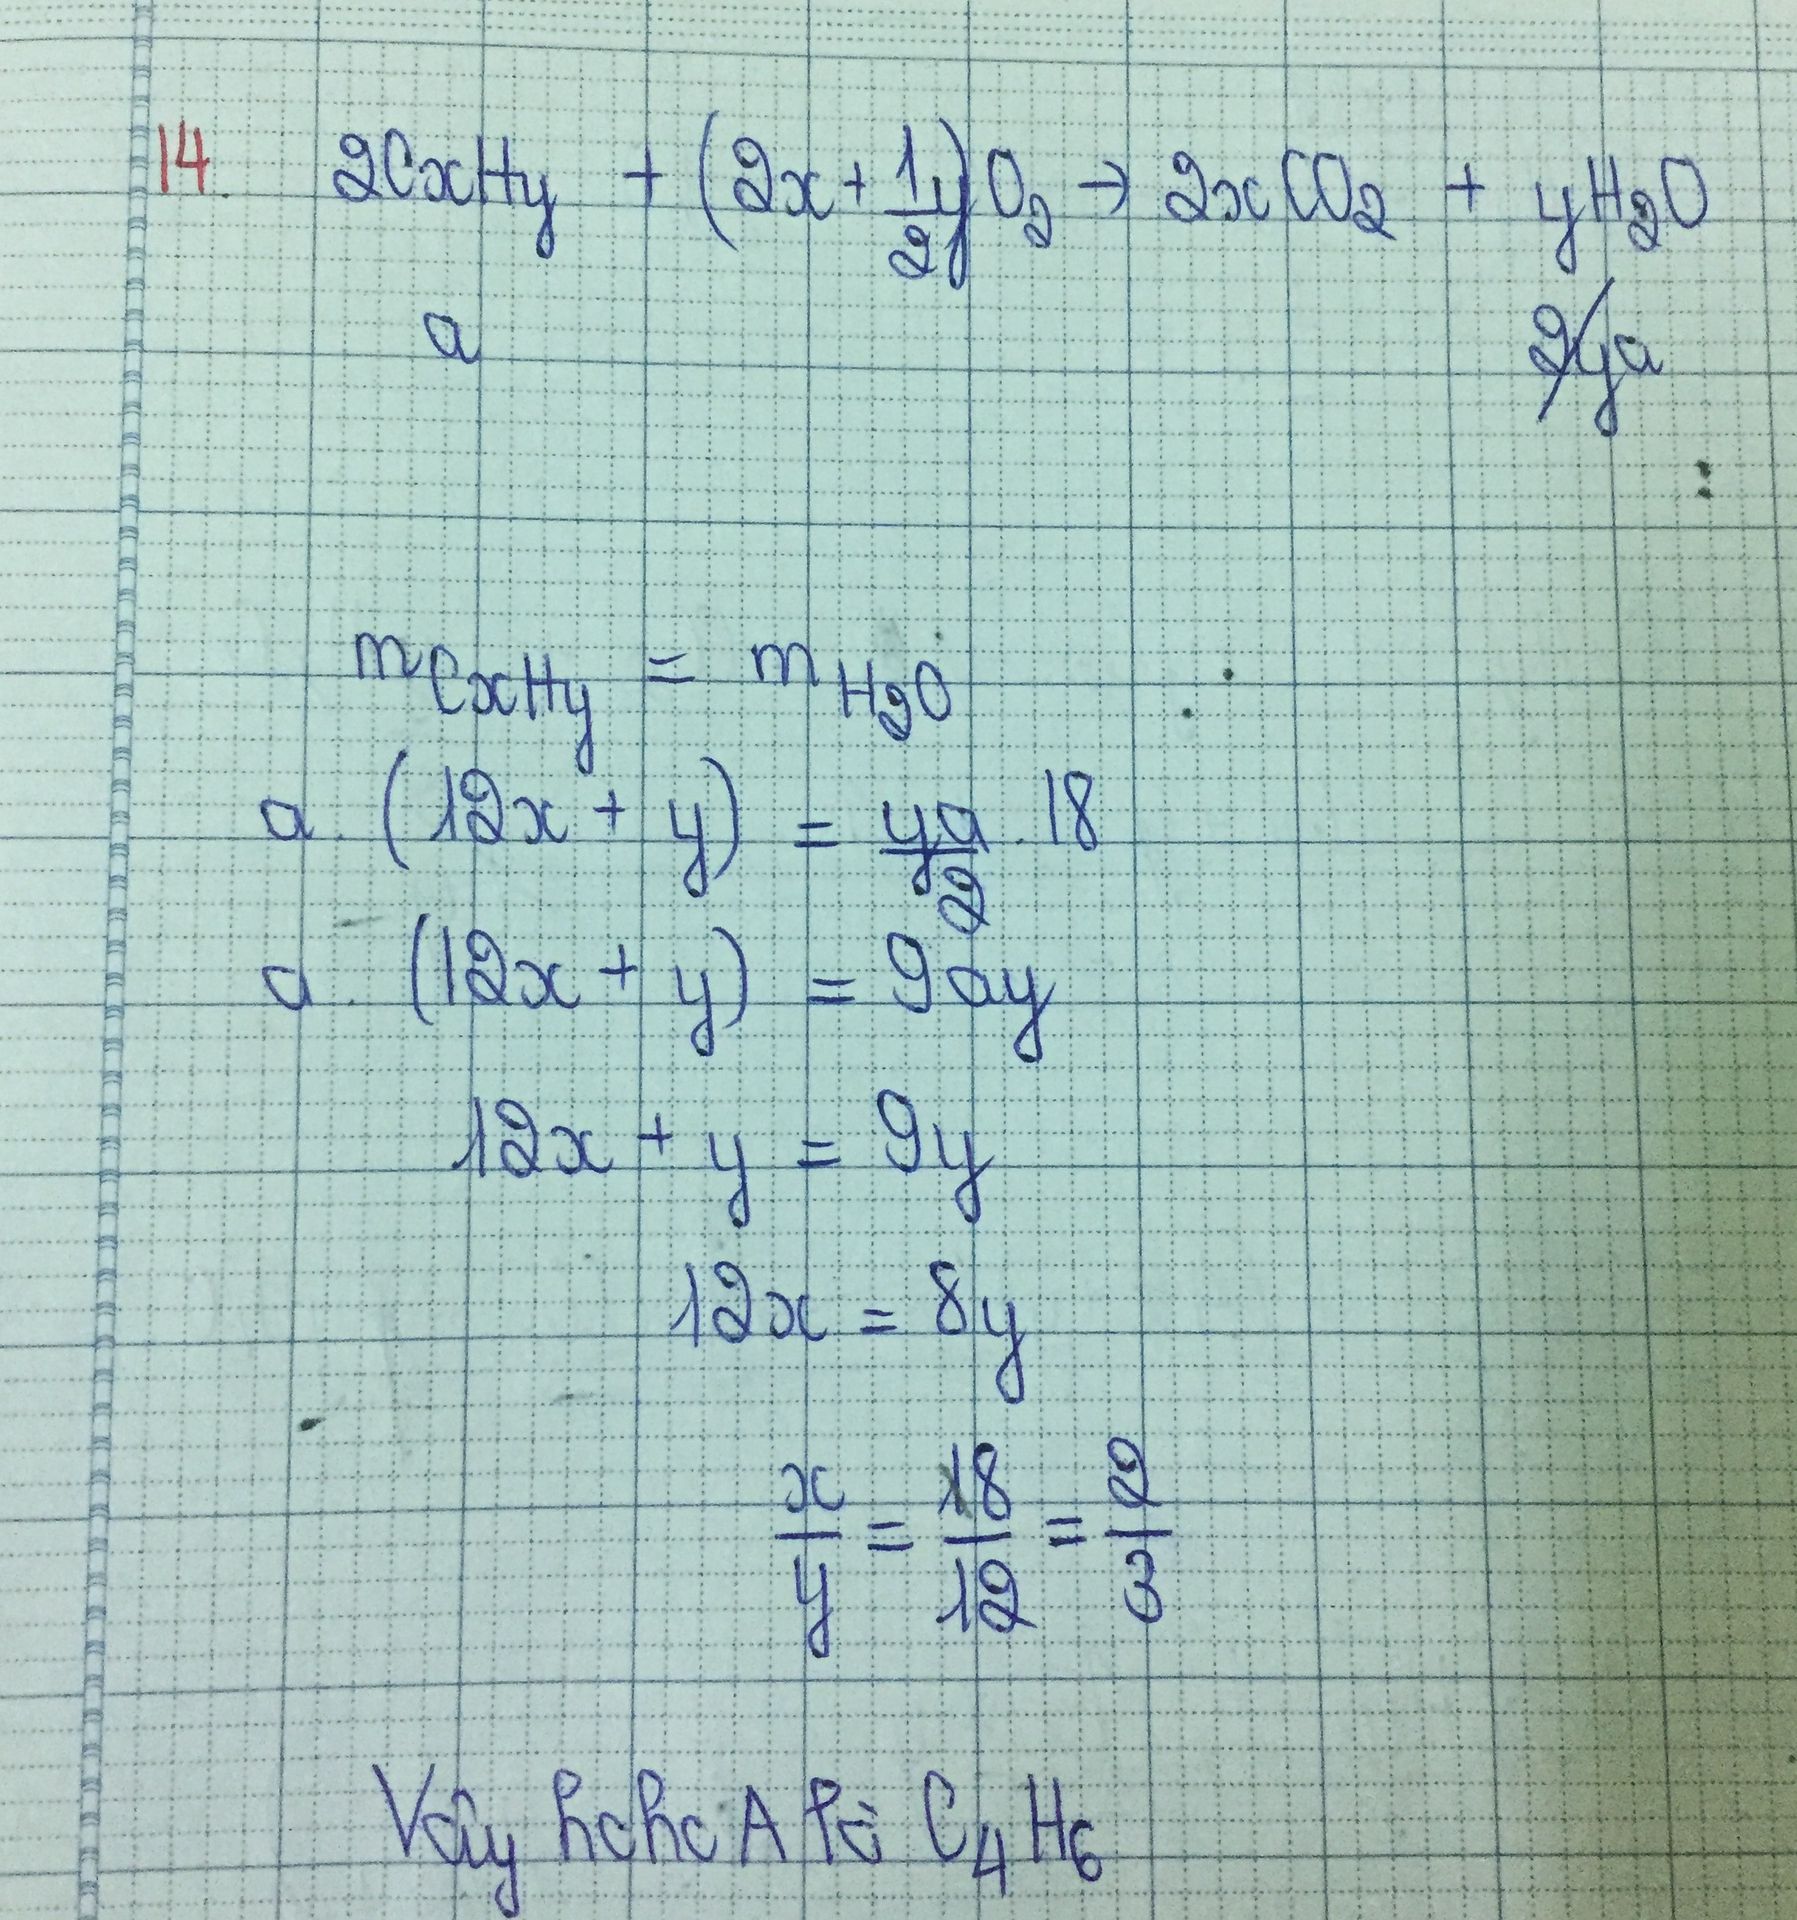 14. 2CxHy + (2x + 1/2 y) O2 → 2xCO2 + yH2O
a 2ya
mCxHy = mH2O
a. (12x + y) = ya/2 . 18
a. (12x + y) = 9ay
12x + y = 9y
12x = 8y
x/y = 8/12 = 2/3
Vậy hchc A là C4H6